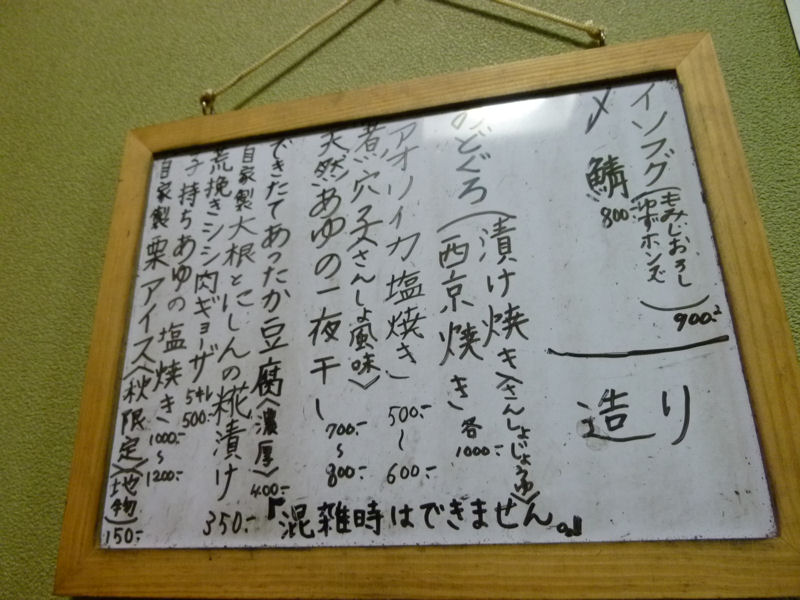 イソフグ(もみじおろし
ゆずポンズ) 900.-
〆鯖 800.-
造り
のどぐろ(漬け焼き(さんしょじょうゆ)
西京焼き 各1000.-
アオリイカ塩焼き 500.-〜600.-
煮穴子(さんしょ風味)
天然あゆの一夜干し 700.-〜800.-
できたてあったか豆腐(濃厚) 400.-
自家製大根とにしんの糀漬け 350.-
荒挽きシシ肉ギョーザ 5ヶ 500.-
子持ちあゆの塩焼き 1000.-〜1200.-
自家製栗アイス(秋限定)(地物) 150.-
『混雑時はできません。』